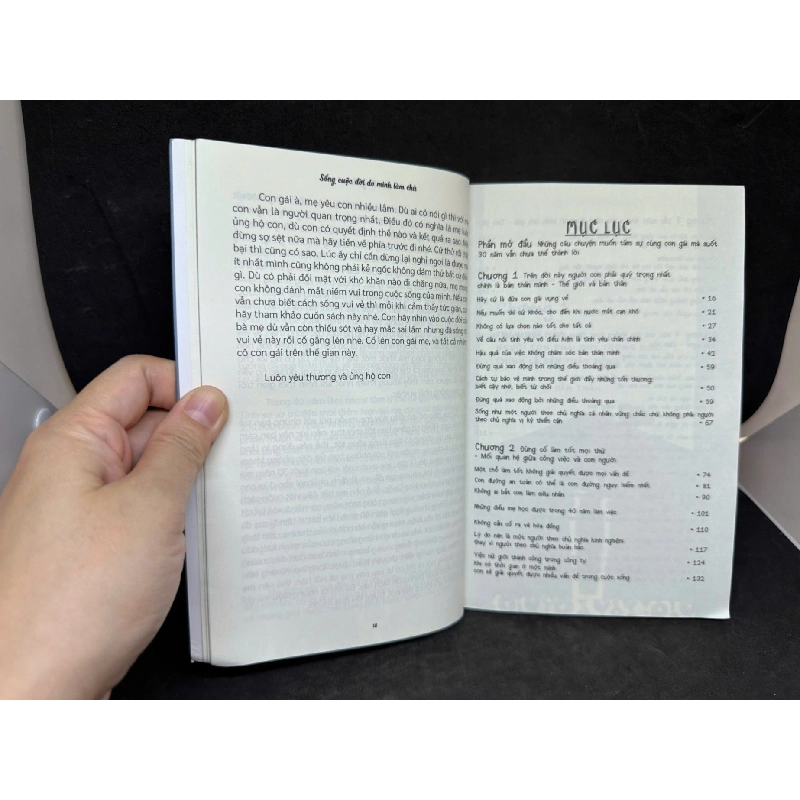 Sống cuộc đời do mình làm chủ
Con gái à, mẹ yêu con nhiều lắm. Dù ai có nói gì thì với mẹ
con vẫn là người quan trọng nhất. Điều đó có nghĩa là mẹ luôn
ủng hộ con, dù con có quyết định thế nào và kết quả ra sao.
đừng sợ sệt nữa mà hãy tiến về phía trước đi nhé. Cứ thử rồi thất
bại thì cũng có sao. Lúc ấy chỉ cần dừng lại nghỉ ngơi là được mà
ít nhất mình cũng không phải kẻ ngốc không dám thử bất cứ điều
gì. Dù có phải đối mặt với khó khăn nào đi chăng nữa, mẹ mong
con không đánh mất niềm vui trong cuộc sống của mình. Nếu con
vẫn chưa biết cách sống vui vẻ thì mỗi khi cảm thấy tức giận,
hãy tham khảo cuốn sách này nhé. Con hãy nhìn vào cuộc đời
bà mẹ dù vẫn còn thiếu sót và hay mắc sai lầm nhưng đã sống
vui vẻ này rồi cố gắng lên nhé. Cố lên con gái mẹ, và tất cả những
cô con gái trên thế gian này.
Luôn yêu thương và ủng hộ con
14
MỤC LỤC
Phần mở đầu Những câu chuyện muốn tâm sự cùng con gái mà suốt
30 năm vẫn chưa thể thành lời
Chương 1 Trên đời này người con phải quý trọng nhất
chính là bản thân mình - Thế giới và bản thân
Hãy cứ là đứa con gái vụng về • 16
Nếu muốn thì cứ khóc, cho đến khi nước mắt cạn khô • 21
Không có lựa chọn nào tốt cho tất cả • 27
Về câu nói tình yêu vô điều kiện là tình yêu chân chính • 34
Hậu quả của việc không chăm sóc bản thân mình • 42
Đừng quá xao động bởi những điều thoáng qua • 59
Cách tự bảo vệ mình trong thế giới đầy những tổn thương:
biết cậy nhờ, biết từ chối • 50
Đừng quá xao động bởi những điều thoáng qua • 59
Sống như một người theo chủ nghĩa cá nhân vững chắc chứ không phải người
theo chủ nghĩa vị kỷ thiển cận • 67
Chương 2 Đừng cố làm tốt mọi thứ
- Mối quan hệ giữa công việc và con người
Một chỗ làm tốt không giải quyết được mọi vấn đề • 74
Con đường an toàn có thể là con đường nguy hiểm nhất • 81
Không ai bắt con làm siêu nhân • 90
Những điều mẹ học được trong 40 năm làm việc • 101
Không cần cố ra vẻ hòa đồng • 110
Lý do nên là một người theo chủ nghĩa kinh nghiệm
thay vì người theo chủ nghĩa hoàn hảo • 117
Việc nữ giới thành công trong công ty • 124
Khi có thời gian ở một mình
con sẽ giải quyết được nhiều vấn đề trong cuộc sống • 132